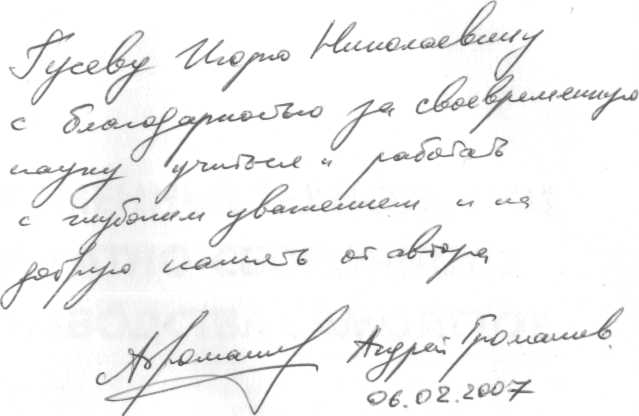 Гусеву Игорю Николаевичу
с благодарностью за своевременную
науку учиться и работать
с глубоким уважением и на
добрую память от автора
Андрей Громашев.
06.02.2007